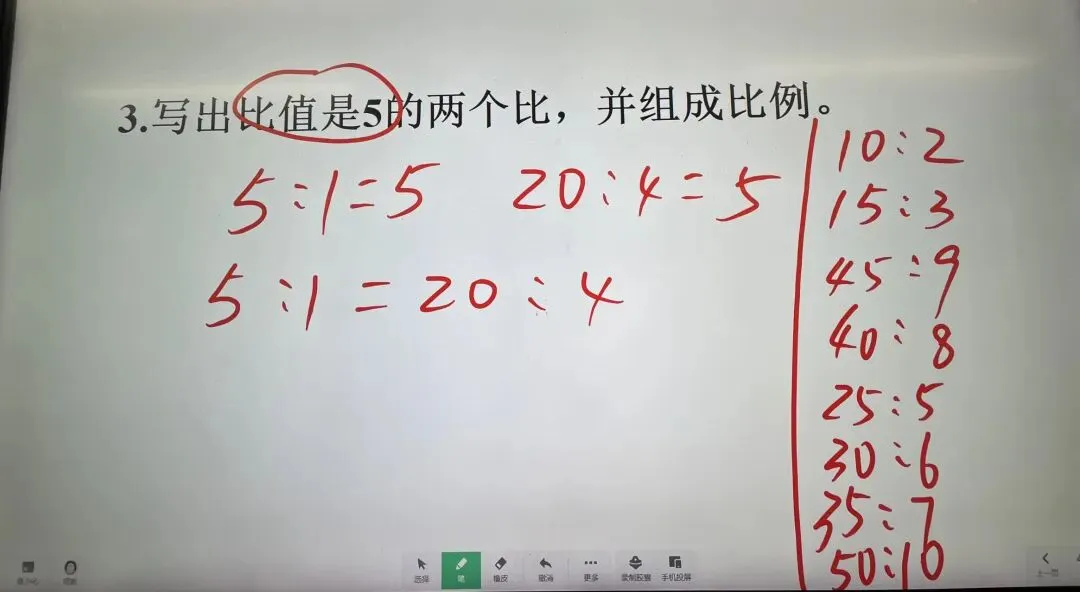 3.写出比值是5的两个比，并组成比例。
5:1=5 20:4=5
5:1=20:4
10:2
15:3
45:9
40:8
25:5
30:6
35:7
50:10
选择 笔 橡皮 撤消 更多 录制胶囊 手机投屏
上一页